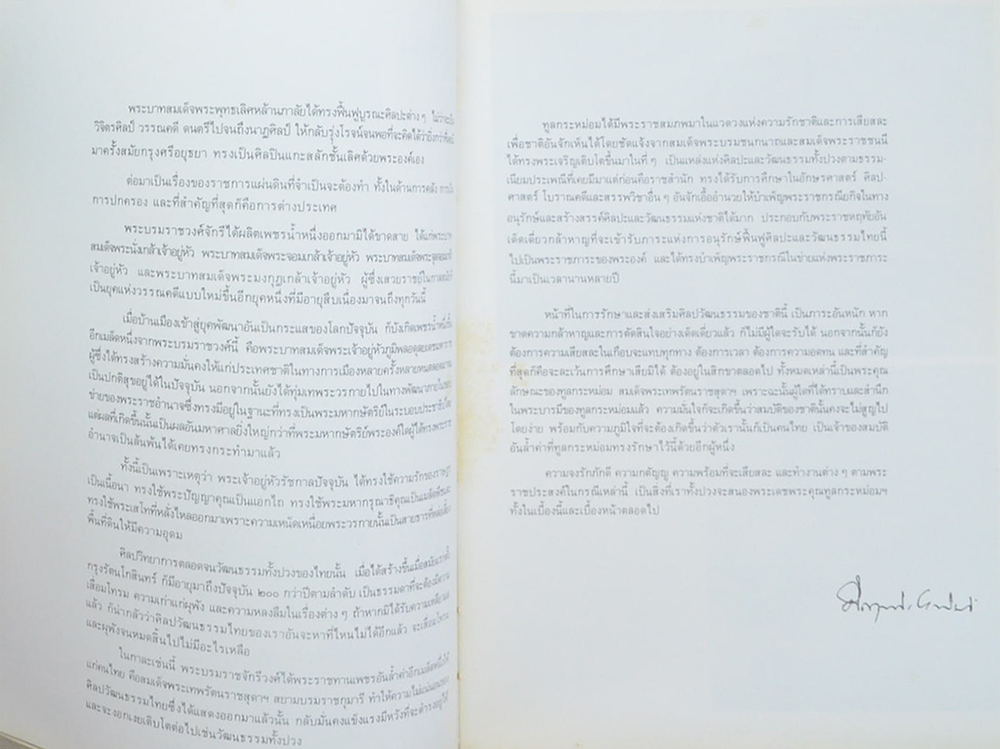 พระบาทสมเด็จพระพุทธเลิศหล้านภาลัยได้ทรงฟื้นฟูบูรณะศิลปะต่าง ๆ ไม่ว่าจะ
วิจิตรศิลป์ วรรณคดี ดนตรีไปจนถึงนาฏศิลป์ ให้กลับรุ่งโรจน์จนพอที่จะคิดได้ว่ายิ่งกว่าที่เคย
มาครั้งสมัยกรุงศรีอยุธยา ทรงเป็นศิลปินแกะสลักชั้นเลิศด้วยพระองค์เอง
ต่อมาเป็นเรื่องของราชการแผ่นดินที่จำเป็นจะต้องทำ ทั้งในด้านการคลัง
การปกครอง และที่สำคัญที่สุดก็คือการต่างประเทศ
พระบรมราชวงศ์จักรีได้ผลิตเพชรน้ำหนึ่งออกมามิได้ขาดสาย ได้แก่พระบาท
สมเด็จพระนั่งเกล้าเจ้าอยู่หัว พระบาทสมเด็จพระจอมเกล้าเจ้าอยู่หัว พระบาทสมเด็จพระจุลจอมเกล้า
เจ้าอยู่หัว และพระบาทสมเด็จพระมงกุฎเกล้าเจ้าอยู่หัว ผู้ซึ่งเสวยราชย์ในกาลสมัยที่
เป็นยุคแห่งวรรณคดีแบบใหม่ขึ้นอีกยุคหนึ่งที่มีอายุสืบเนื่องมาจนถึงทุกวันนี้
เมื่อบ้านเมืองเข้าสู่ยุคพัฒนาอันเป็นกระแสของโลกปัจจุบัน ก็บังเกิดเพชรน้ำหนึ่งขึ้น
อีกเม็ดหนึ่งจากพระบรมราชวงศ์นี้ คือพระบาทสมเด็จพระเจ้าอยู่หัวภูมิพลอดุลยเดชมหาราช
ผู้ซึ่งได้ทรงสร้างความมั่นคงให้แก่ประเทศชาติในทางการเมืองหลายครั้งหลายหน
เป็นปกติสุขอยู่ได้ในปัจจุบัน นอกจากนั้นยังได้ทุ่มเทพระวรกายไปในทางพัฒนาภายใน
ข่ายของพระราชอำนาจซึ่งทรงมีอยู่ในฐานะที่ทรงเป็นพระมหากษัตริย์ในระบอบประชาธิปไตย
แต่ผลที่เกิดขึ้นนั้นเป็นผลอันมหาศาลยิ่งใหญ่กว่าที่พระมหากษัตริย์พระองค์ใดผู้ได้ทรงพระราช
อำนาจเป็นล้นพ้นได้เคยทรงกระทำมาแล้ว
ทั้งนี้เป็นเพราะเหตุว่า พระเจ้าอยู่หัวรัชกาลปัจจุบัน ได้ทรงใช้ความรักของราษฎร
เป็นเนื้อนา ทรงใช้พระปัญญาคุณเป็นแอกไถ ทรงใช้พระมหากรุณาธิคุณเป็นเมล็ดพืชและ
ทรงใช้พระเสโทที่หลั่งไหลออกมาเพราะความเหน็ดเหนื่อยพระวรกายนั้นเป็นสายธารที่
พื้นที่ดินให้มีความอุดม
ศิลปวิทยาการตลอดจนวัฒนธรรมทั้งปวงของไทยนั้น เมื่อได้สร้างขึ้นเมื่อสมัยแรกตั้ง
กรุงรัตนโกสินทร์ ก็มีอายุมาถึงปัจจุบัน ๒๐๐ กว่าปีตามลำดับ เป็นธรรมดาที่จะต้องมีความ
เสื่อมโทรม ความเก่าแก่ผุพัง และความหลงลืมในเรื่องต่าง ๆ ถ้าหากมิได้รับความ
แล้ว ก็น่ากลัวว่าศิลปวัฒนธรรมไทยของเราอันจะหาที่ไหนไม่ได้อีกแล้ว จะเสื่อมโทรม
และผุพังจนหมดสิ้นไปไม่มีอะไรเหลือ
ในกาละเช่นนี้ พระบรมราชจักรีวงศ์ได้พระราชทานเพชรอันล้ำค่าอีกเม็ดหนึ่งให้
แก่คนไทย คือสมเด็จพระเทพรัตนราชสุดาฯ สยามบรมราชกุมารี ทำให้ความไม่แน่นอนของ
ศิลปวัฒนธรรมไทยซึ่งได้แสดงออกมาแล้วนั้น กลับมั่นคงแข็งแรงมีหวังที่จะดำรงอยู่ได้
และจะงอกเงยเติบโตต่อไปเช่นวัฒนธรรมทั้งปวง
ทูลกระหม่อมได้มีพระราชสมภพมาในแวดวงแห่งความรักชาติและการเสียสละ
เพื่อชาติอันจักเห็นได้โดยชัดแจ้งจากสมเด็จพระบรมชนกนาถและสมเด็จพระราชชนนี
ได้ทรงพระเจริญเติบโตขึ้นมาในที่ ๆ เป็นแหล่งแห่งศิลปะและวัฒนธรรมทั้งปวงตามธรรม-
เนียมประเพณีที่เคยมีมาแต่ก่อนคือราชสำนัก ทรงได้รับการศึกษาในอักษรศาสตร์ ศิลป-
ศาสตร์ โบราณคดีและสรรพวิชาอื่น ๆ อันจักเอื้ออำนวยให้บำเพ็ญพระราชกรณียกิจในทาง
อนุรักษ์และสร้างสรรค์ศิลปะและวัฒนธรรมแห่งชาติได้มาก ประกอบกับพระราชหฤทัยอัน
เด็ดเดี่ยวกล้าหาญที่จะเข้ารับภาระแห่งการอนุรักษ์ฟื้นฟูศิลปะและวัฒนธรรมไทยนี้
ไปเป็นพระราชภาระของพระองค์ และได้ทรงบำเพ็ญพระราชกรณีในข่ายแห่งพระราชภาระ
นี้มาเป็นเวลานานหลายปี
หน้าที่ในการรักษาและส่งเสริมศิลปวัฒนธรรมของชาตินี้ เป็นภาระอันหนัก หาก
ขาดความกล้าหาญและการตัดสินใจอย่างเด็ดเดี่ยวแล้ว ก็ไม่มีผู้ใดจะรับได้ นอกจากนั้นก็ยัง
ต้องการความเสียสละในเกือบจะแทบทุกทาง ต้องการเวลา ต้องการความอดทน และที่สำคัญ
ที่สุดก็คือจะละเว้นการศึกษาเสียมิได้ ต้องอยู่ในสิกขาตลอดไป ทั้งหมดเหล่านี้เป็นพระคุณ
ลักษณะของทูลกระหม่อม สมเด็จพระเทพรัตนราชสุดาฯ เพราะฉะนั้นผู้ใดที่ได้ทราบและสำนึก
ในพระบารมีของทูลกระหม่อมแล้ว ความมั่นใจก็จะเกิดขึ้นว่าสมบัติของชาตินั้นคงจะไม่สูญไป
โดยง่าย พร้อมกับความภูมิใจที่จะต้องเกิดขึ้นว่าตัวเรานั้นก็เป็นคนไทย เป็นเจ้าของสมบัติ
อันล้ำค่าที่ทูลกระหม่อมทรงรักษาไว้นี้ด้วยอีกผู้หนึ่ง
ความจงรักภักดี ความกตัญญู ความพร้อมที่จะเสียสละ และทำงานต่าง ๆ ตามพระ
ราชประสงค์ในกรณีเหล่านี้ เป็นสิ่งที่เราทั้งปวงจะสนองพระเดชพระคุณทูลกระหม่อมฯ
ทั้งในเบื้องนี้และเบื้องหน้าตลอดไป